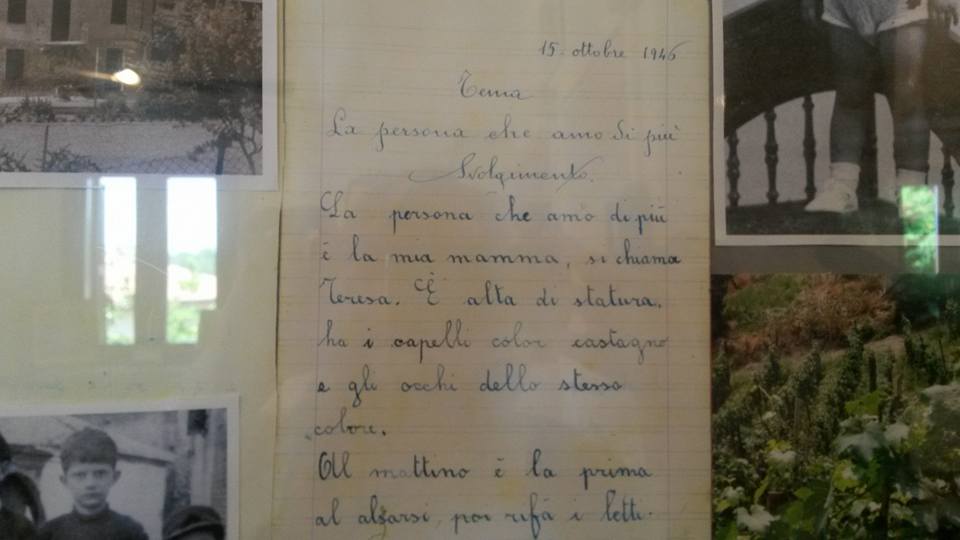 15. ottobre 1946
Tema
La persona che amo di più
Svolgimento.
La persona che amo di più
è la mia mamma, si chiama
Teresa. È alta di statura.
ha i capelli color castagno
e gli occhi dello stesso
colore.
Al mattino è la prima
al alsarsi, poi rifà i letti.